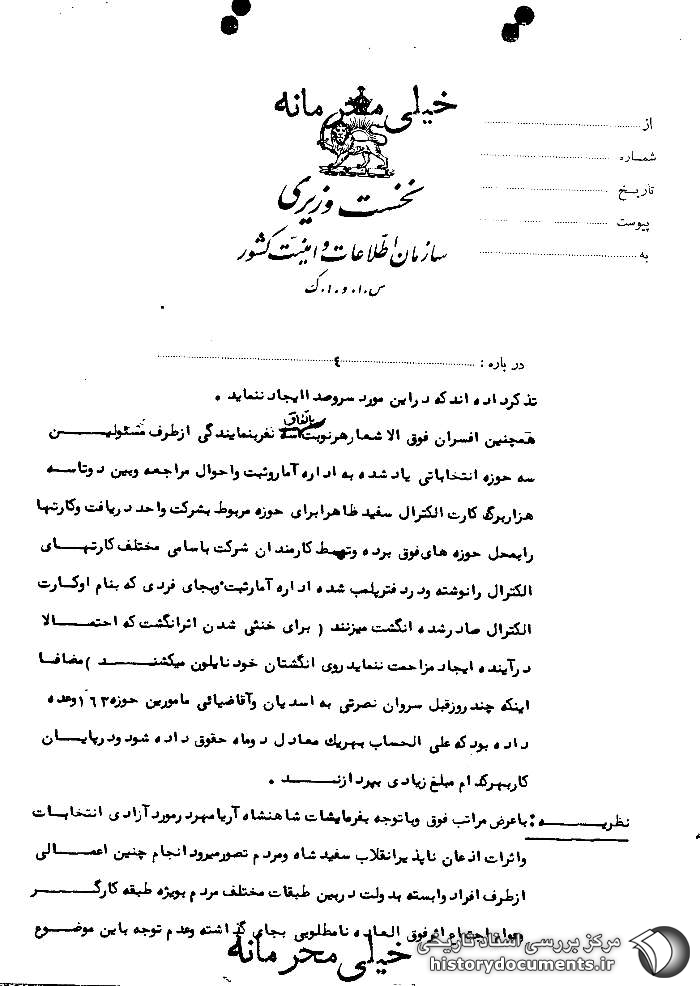 خیلی محرمانه
از
شماره
تاریخ
پیوست
به
نخست وزیری
سازمان اطلاعات و امنیت کشور
س.ا.و.ا.ک
در باره : ٤
تذکر داده اند که در این مورد سروصدا ایجاد ننماید .
همچنین افسران فوق الاشعار هر نوبت باتفاق سه نفر بنمایندگی از طرف مسئولین
سه حوزه انتخاباتی یاد شده به اداره آمار و ثبت و احوال مراجعه و بین دو تا سه
هزار برگ کارت الکترال سفید ظاهرا برای حوزه مربوط بشرکت واحد دریافت و کارتها
را بمحل حوزه های فوق برده و توسط کارمندان شرکت با سامی مختلف کارتهای
الکترال را نوشته و در دفتر پلمب شده اداره آمار ثبت و بجای فردی که بنام او کارت
الکترال صادر شده انگشت میزنند ( برای خنثی شدن اثر انگشت که احتمالا
در آینده ایجاد مزاحمت ننماید روی انگشتان خود نایلون میکشند ) مضافا
اینکه چند روز قبل سروان نصرتی به اسدیان و آقاضیائی مامورین حوزه ۱٦۳ وعده
داده بود که علی الحساب بهریك معادل دو ماه حقوق داده شود و در پایان
کار بهر کدام مبلغ زیادی بپردازند .
نظریه : با عرض مراتب فوق و با توجه بفرمایشات شاهنشاه آریامهر در مورد آزادی انتخابات
و اثرات اذعان ناپذیر انقلاب سفید شاه و مردم تصور میرود انجام چنین اعمالی
از طرف افراد وابسته بدولت در بین طبقات مختلف مردم بویژه طبقه کارگر
اجتماع اثر فوق العاده نامطلوبی بجای گذاشته و عدم توجه باین موضوع
خیلی محرمانه
مرکز بررسی اسناد تاریخی
historydocuments.ir